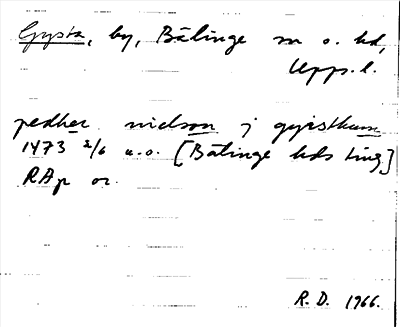 Gysta, by, Bälinge sn o. hd,
Upps.l.
pedher nielson j gyristhum
1473 2/6 u.o. [Bälinge hds ting]
RAp or.
R.D. 1966.